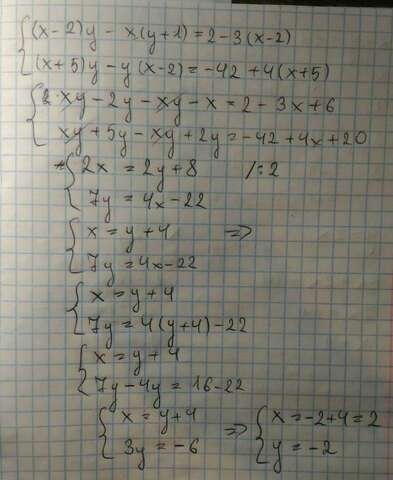 (x-2)y - x(y+1) = 2-3(x-2)
(x+5)y - y(x-2) = -42 +4(x+5)
xy - 2y - xy - x = 2 - 3x + 6
xy + 5y - xy + 2y = -42 + 4x + 20
2x = 2y + 8 /:2
7y = 4x - 22
x = y + 4 =>
7y = 4x - 22
x = y + 4
7y = 4(y+4) - 22
x = y + 4
7y - 4y = 16 - 22
x = y + 4 => x = -2+4 = 2
3y = -6 y = -2